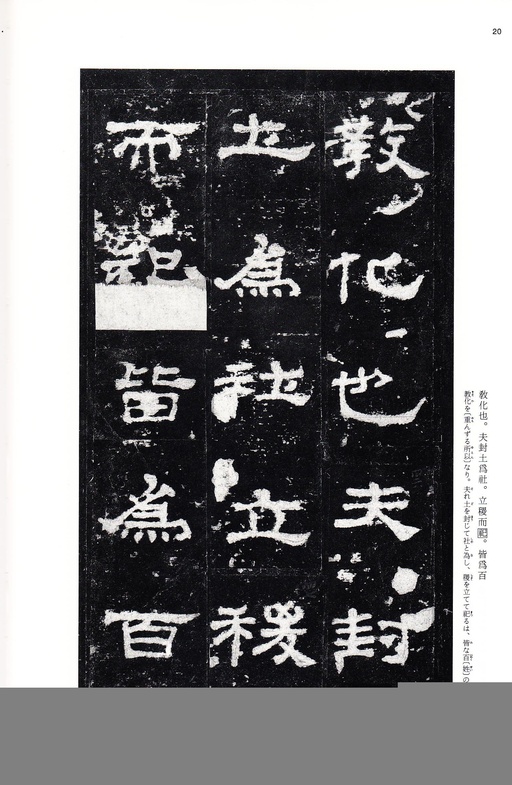 20
教化也夫封
土為社立稷
而祀皆為百
教化也。夫封土為社。立稷而祀。皆為百
教化を〔重んずる所以〕なり。夫れ土を封じて社と為し、稷を立てて祀るは、皆な百〔姓〕の